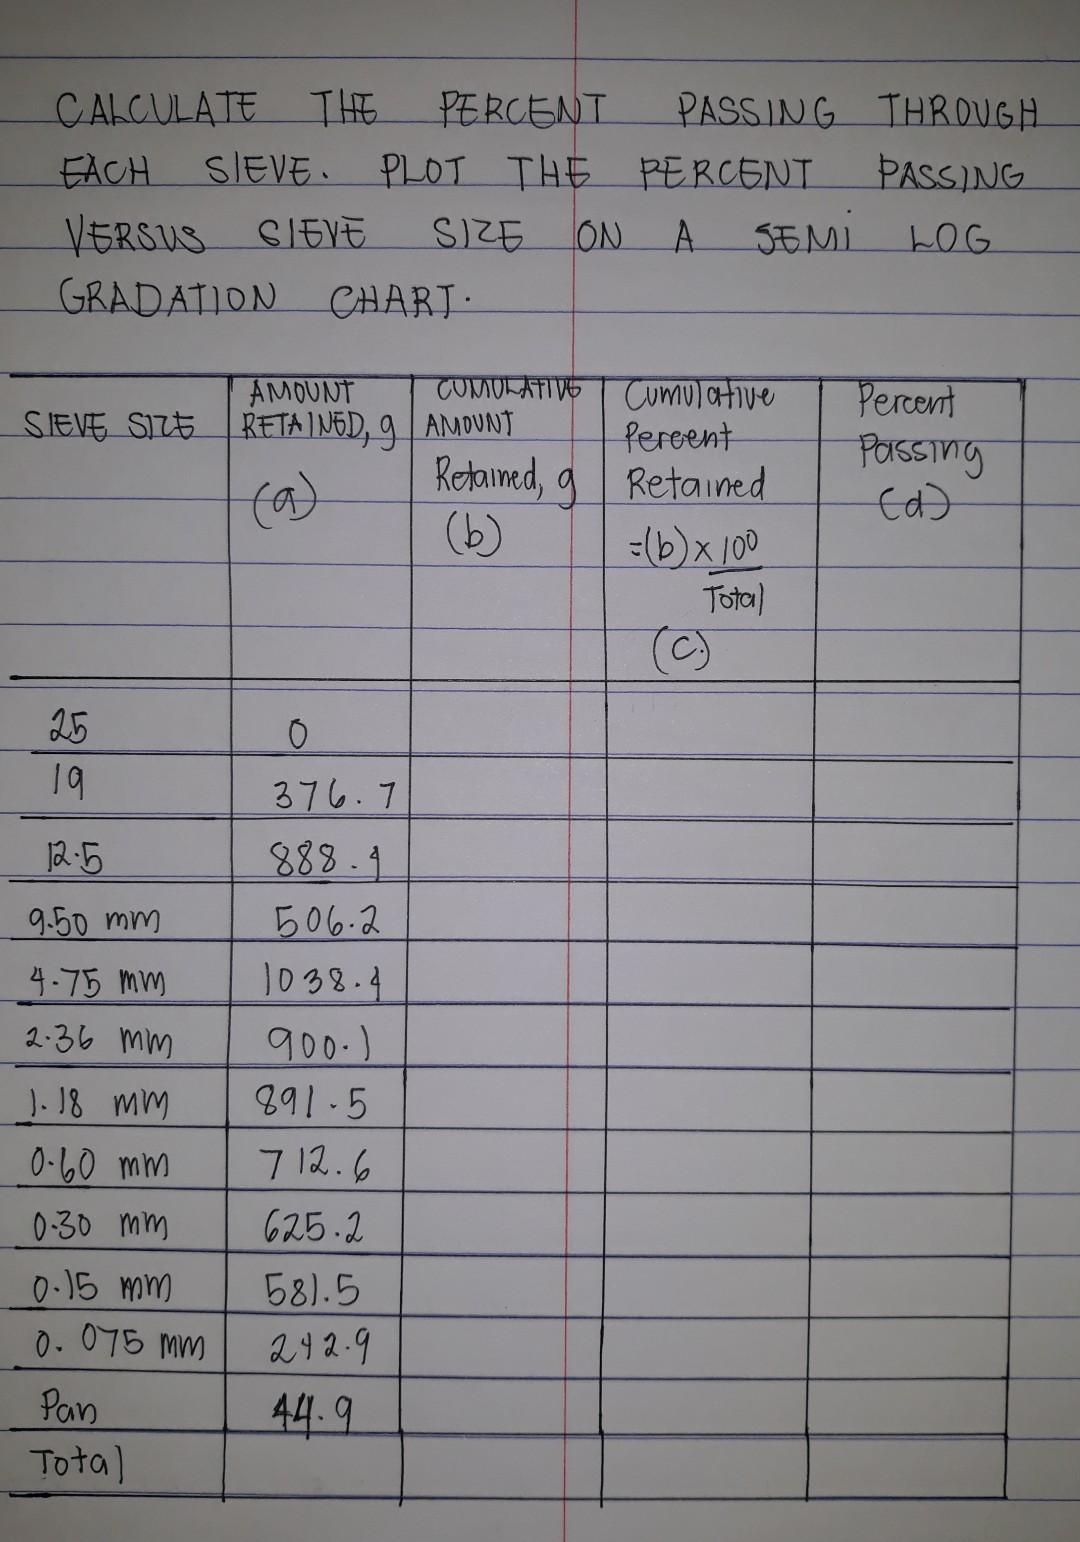 CALCULATE THE PERCENT PASSING THROUGH
EACH SIEVE. PLOT THE PERCENT PASSING
VERSUS SIEVE SIZE ON A SEMI LOG
GRADATION CHART.
SIEVE SIZE
AMOUNT
RETAINED, g
(a)
CUMULATIVE
AMOUNT
Retained, g
(b)
Cumulative
Percent
Retained
=(b) x 100
Total
(c)
Percent
Passing
(d)
25 0
19 376.7
12.5 888.4
9.50 mm 506.2
4.75 mm 1038.4
2.36 mm 900.1
1.18 mm 891.5
0.60 mm 712.6
0.30 mm 625.2
0.15 mm 581.5
0.075 mm 242.9
Pan 44.9
Total